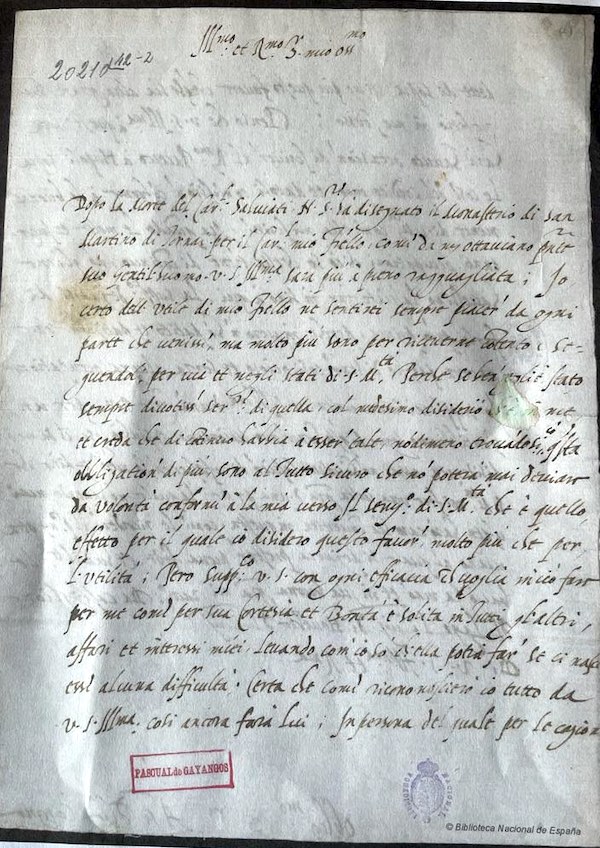 20210 42-2
Ill.mo et R.mo S.r mio oss.mo
Dopo la morte del Car.l Salviati N. S.re ha disegnato il Monasterio di San
Martino di per il Car.l mio fr'ello, come da m Ottaviano pnte
suo gentilhuomo V. S. Ill.ma sarà più a pieno ragguagliata; Io
certo dell' utile di mio fr'ello ne sentirei sempre piacer' da ogni
parte che venissi, ma molto più sono per riceverne cotento se-
guendoli per via et negli stati di S. M.tà Perche se ben egli è stato
sempre divotiss. ser.re di quella, col medesimo disiderio me
et creda che di cotinuo habbia à esser' tale, nodimeno trovadosi q'sta
obligation' di più, sono al tutto sicuro che no' poterà mai deviare
da volontà conforme à la mia verso il servy.o di S. M.tà che è quello
effetto per il quale io disidero questo favor' molto più che per
l'utilità; Però supp.co V. S. con ogni efficacia voglia in ciò fare
per me come per sua Cortesia et Bontà è solita in tutti gl'altri
affari et interessi miei, levando com' io so ch'ella potrà far' se ci nasc
essi alcuna difficultà. Certa che come riconosciero io tutto da
V. S. Ill.ma, così ancora farà lui; In persona del quale per le cagioni
PASCUAL de GAYANGOS
BIBLIOTECA NACIONAL
© Biblioteca Nacional de España